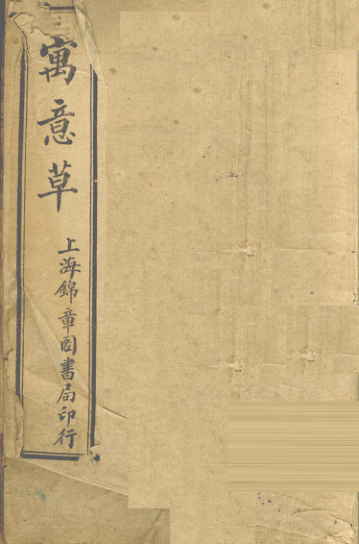 寓意草
上海錦章圖書局印行